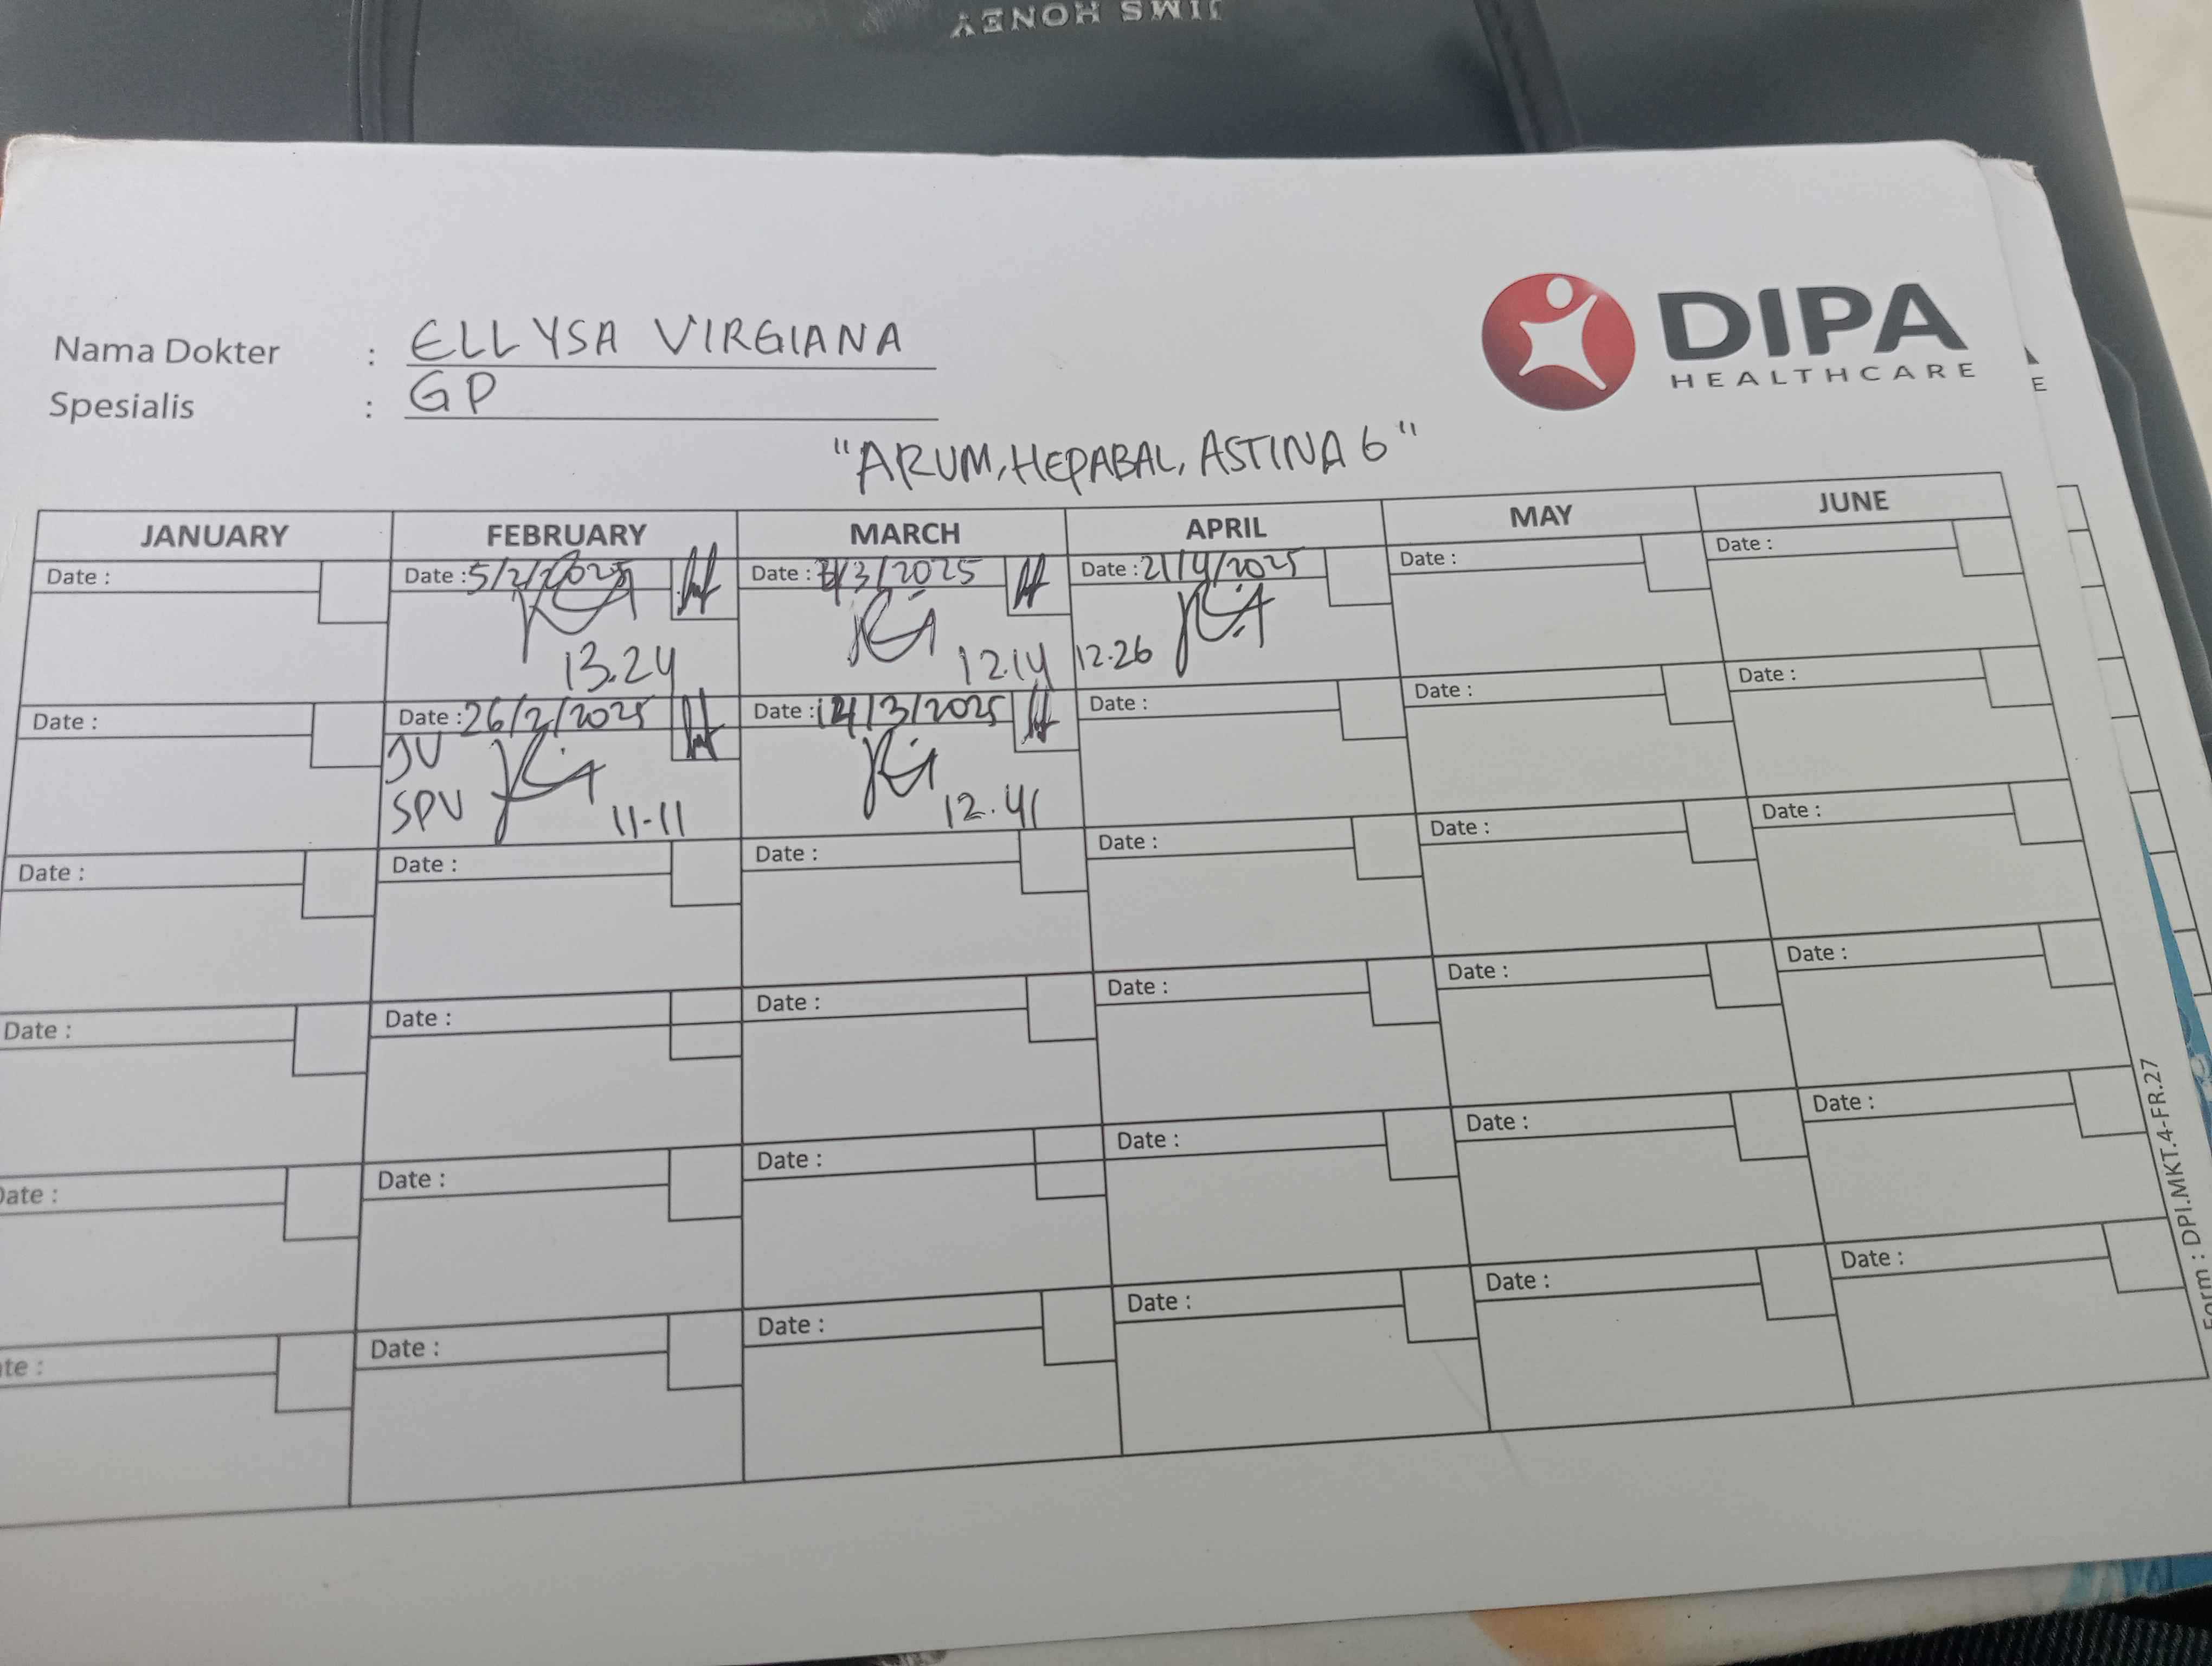 JIMS HONEY
DIPA
HEALTHCARE
Nama Dokter : ELLYSA VIRGIANA
Spesialis : GP
"ARUM, HEPABAL, ASTINA 6"
JANUARY FEBRUARY MARCH APRIL MAY JUNE
Date : Date : 5/2/2025 Date : /3/2025 Date : 21/4/2025 Date : Date :
13.24 12.14 12.26
Date : Date : 26/2/2025 Date : 14/3/2025 Date : Date : Date :
JV
SPV 11-11 12.41
Date : Date : Date : Date : Date : Date :
Date : Date : Date : Date : Date : Date :
Date : Date : Date : Date : Date : Date :
te : Date : Date : Date : Date : Date :
Form : DPI.MKT.4-FR.27
E